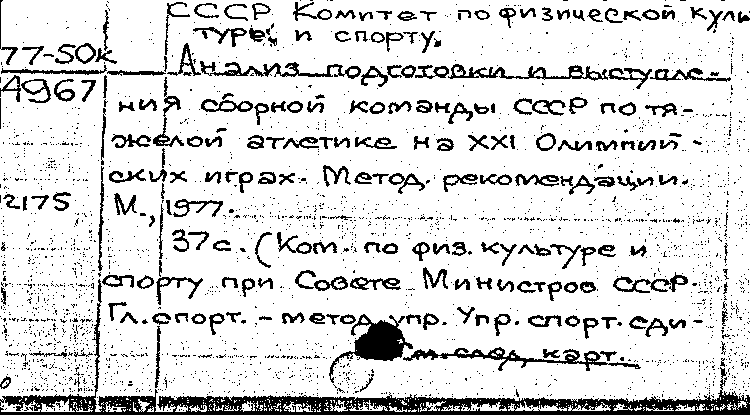 СССР Комитет по физической куль
туре и спорту.
77-50к
Анализ подготовки и выступле-
4967
ния сборной команды СССР по тя-
желой атлетике на XXI Олимпий-
ских играх. Метод. рекомендации.
2175
М., 1977.
37с. (Ком. по физ. культуре и
спорту при Совете Министров СССР.
Гл. спорт. - метод. упр. Упр. спорт. еди-
см. след. карт.